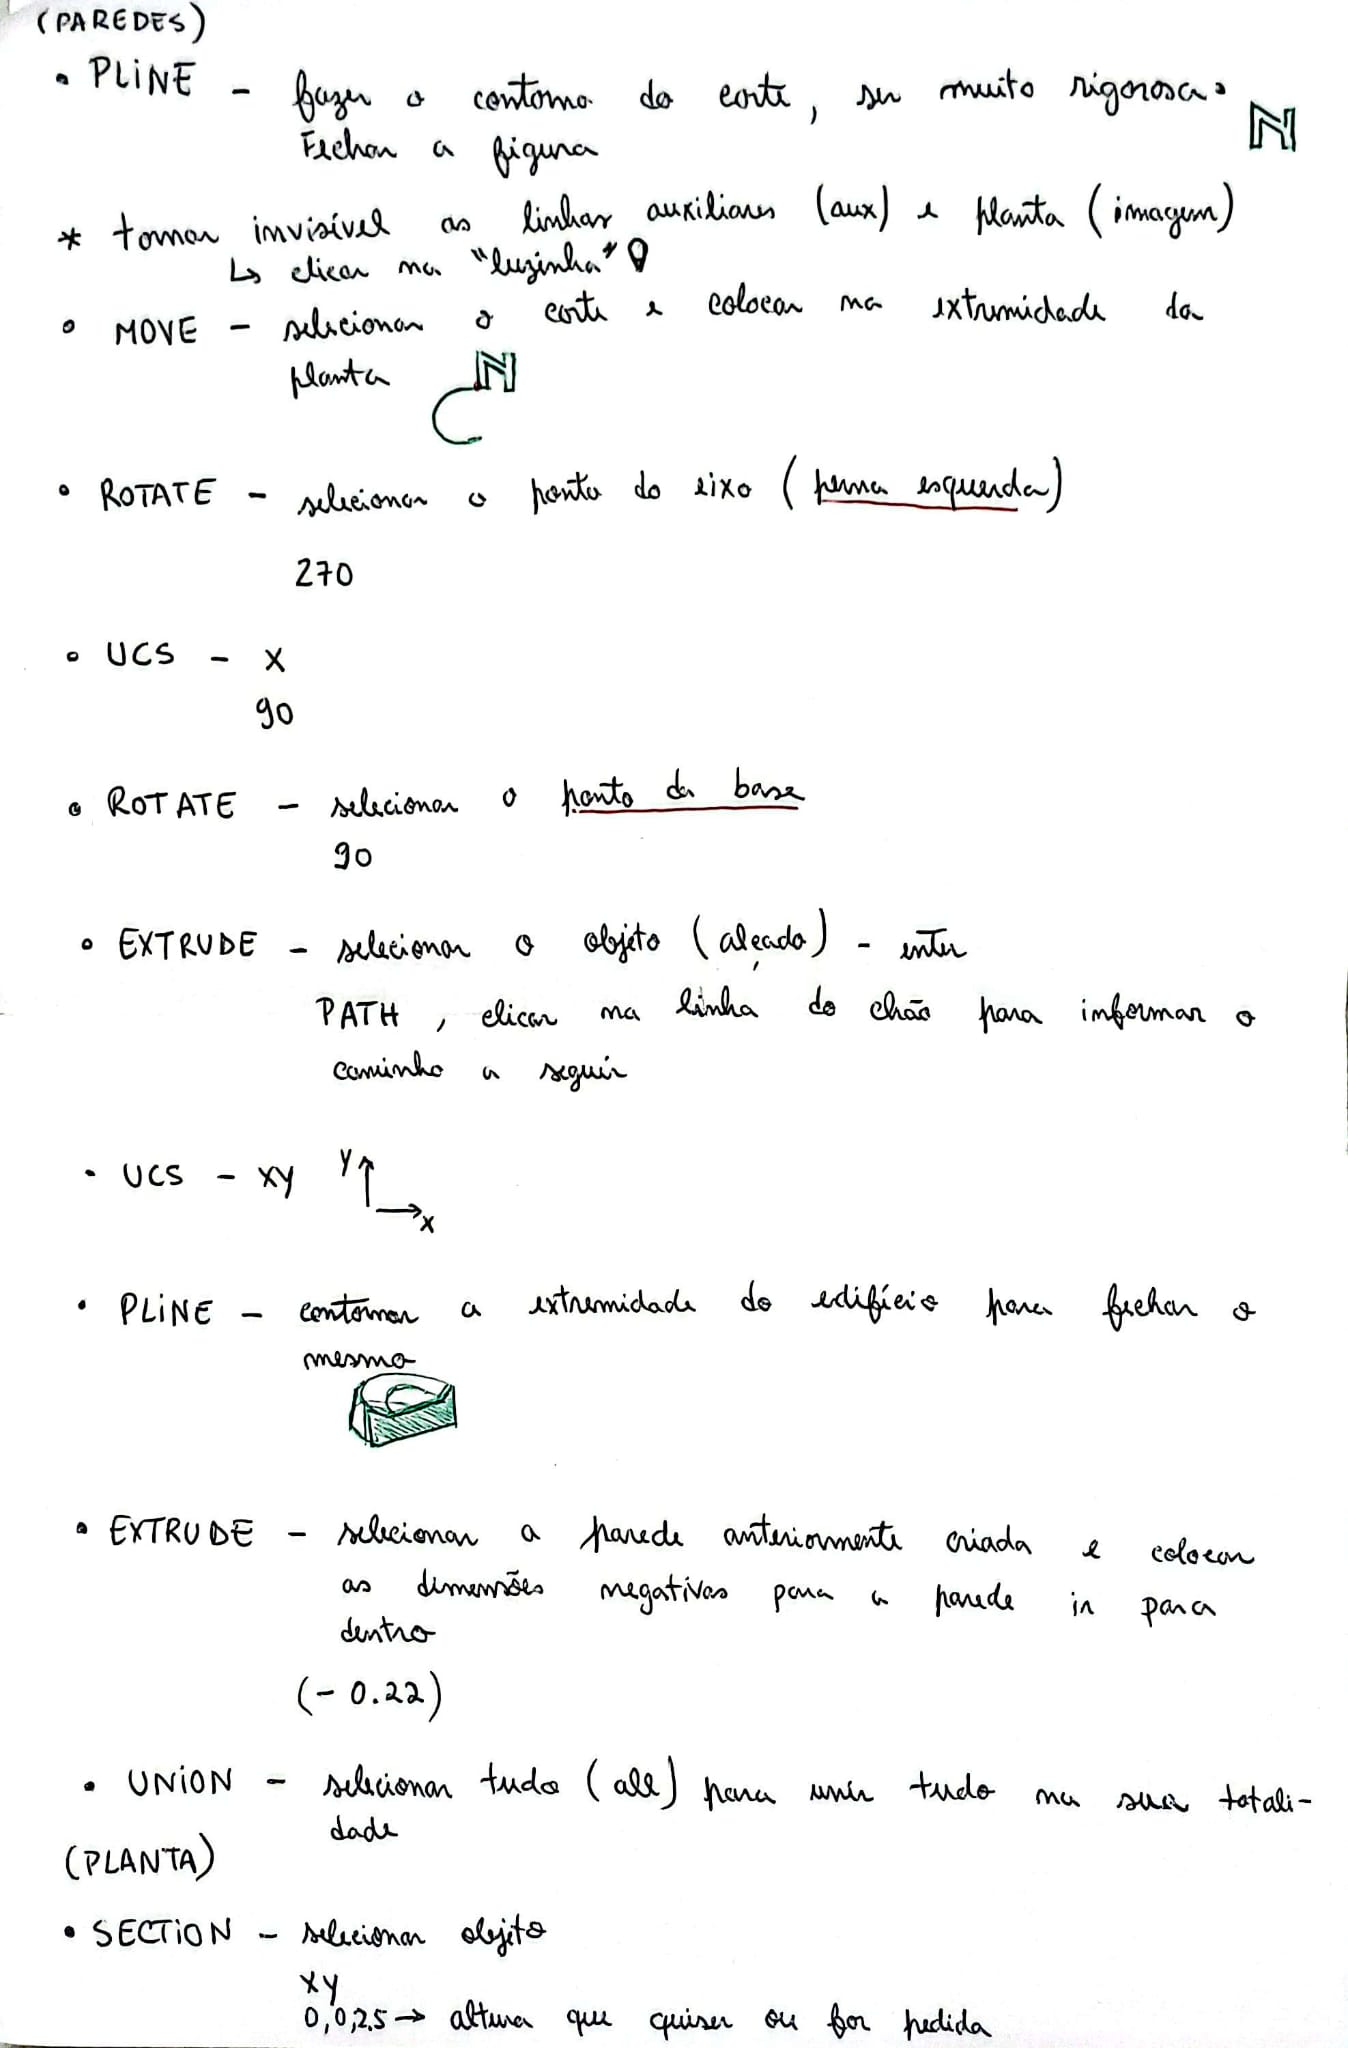 (PAREDES)
• PLINE - fazer o contorno do corte, ser muito rigorosa.
Fechar a figura
* tornar invisível as linhas auxiliares (aux) e planta (imagem)
↳ clicar na "luzinha"
• MOVE - selecionar o corte e colocar na extremidade da
planta
• ROTATE - selecionar o ponto do eixo (perna esquerda)
270
• UCS - X
90
• ROTATE - selecionar o ponto da base
90
• EXTRUDE - selecionar o objeto (alçado) - enter
PATH, clicar na linha do chão para informar o
caminho a seguir
• UCS - XY Y
X
• PLINE - contornar a extremidade do edifício para fechar o
mesmo
• EXTRUDE - selecionar a parede anteriormente criada e colocar
as dimensões negativas para a parede ir para
dentro
(-0.22)
• UNION - selecionar tudo (all) para unir tudo na sua totali-
dade
(PLANTA)
• SECTION - selecionar objeto
XY
0,0,2.5 → altura que quiser ou for pedida